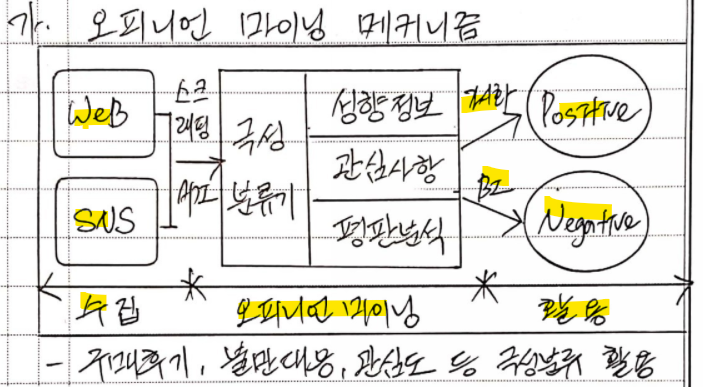 가. 오피니언 마이닝 메커니즘
WeB
SNS
스크
래핑
극성
분류기
성향정보
관심사항
평판분석
BI
Positive
Negative
수집
오피니언 마이닝
활용
- 구매후기, 불만대응, 관심도 등 극성분류 활용